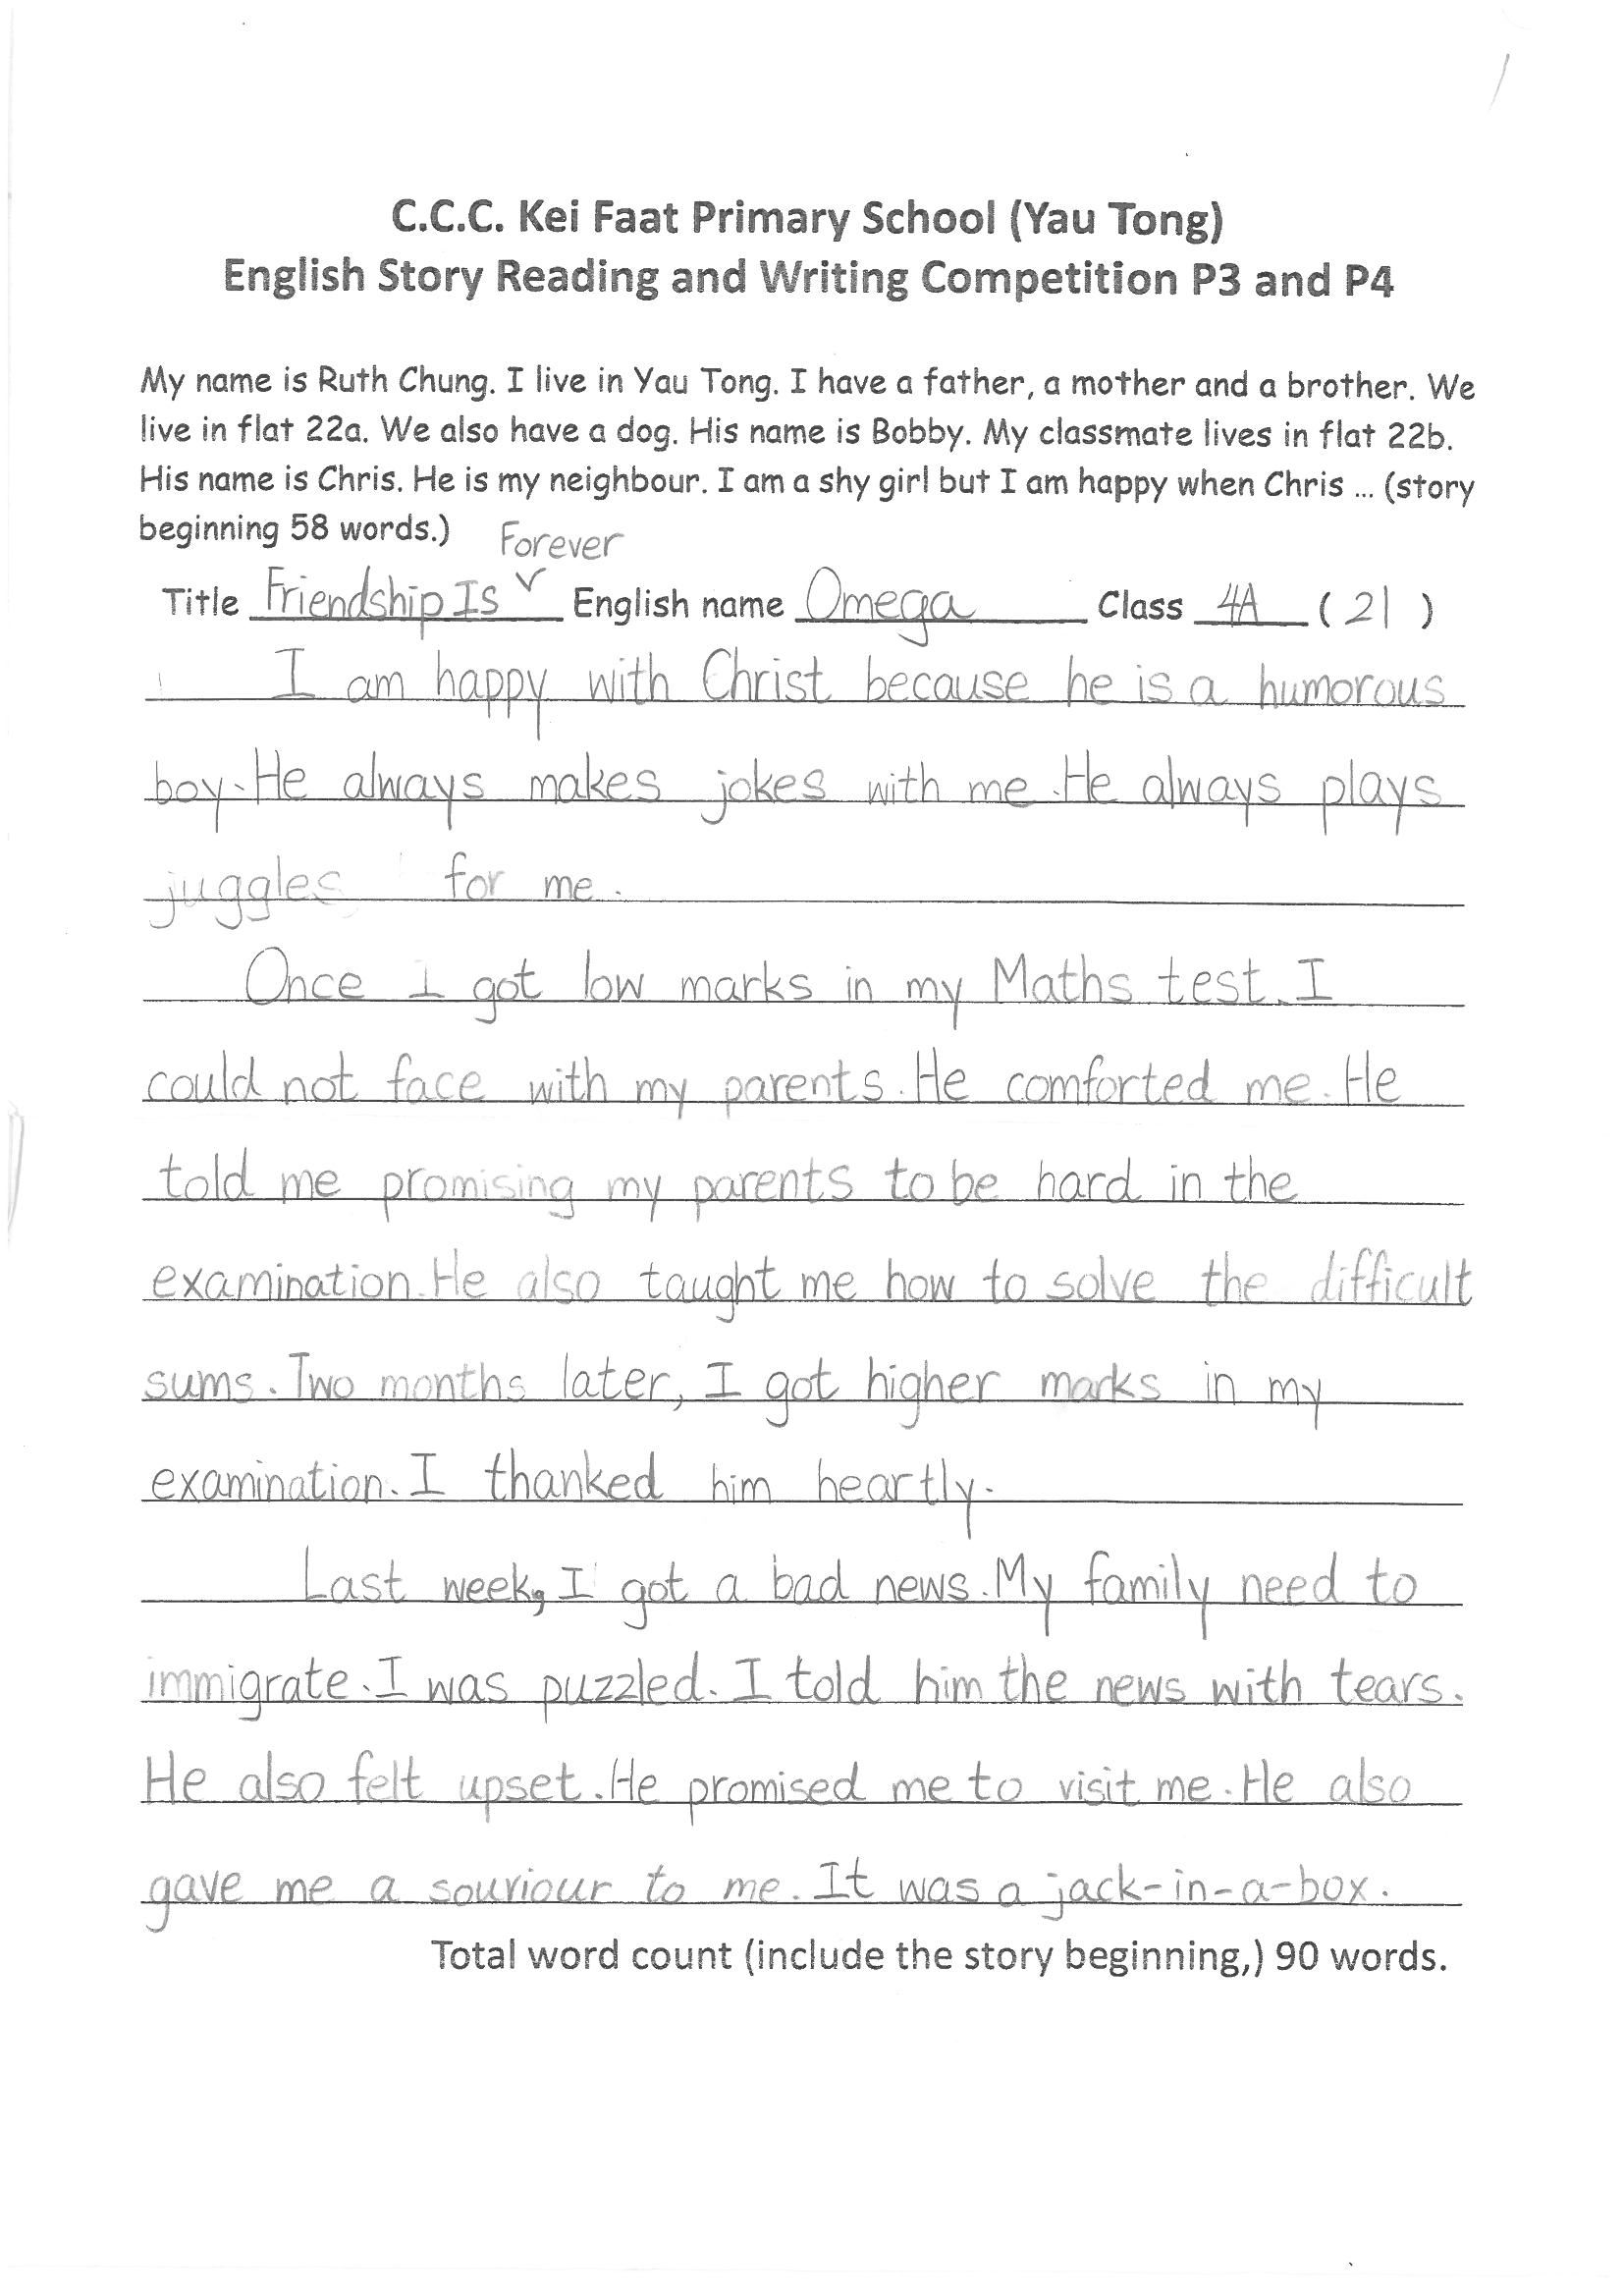 C.C.C. Kei Faat Primary School (Yau Tong)
English Story Reading and Writing Competition P3 and P4
My name is Ruth Chung. I live in Yau Tong. I have a father, a mother and a brother. We
live in flat 22a. We also have a dog. His name is Bobby. My classmate lives in flat 22b.
His name is Chris. He is my neighbour. I am a shy girl but I am happy when Chris ... (story
beginning 58 words.)
Forever
Title Friendship Is ∨ English name Omega Class 4A (21)
I am happy with Christ because he is a humorous
boy. He always makes jokes with me. He always plays
juggles for me.
Once I got low marks in my Maths test. I
could not face with my parents. He comforted me. He
told me promising my parents to be hard in the
examination. He also taught me how to solve the difficult
sums. Two months later, I got higher marks in my
examination. I thanked him heartly.
Last week, I got a bad news. My family need to
immigrate. I was puzzled. I told him the news with tears.
He also felt upset. He promised me to visit me. He also
gave me a souviour to me. It was a jack-in-a-box.
Total word count (include the story beginning,) 90 words.